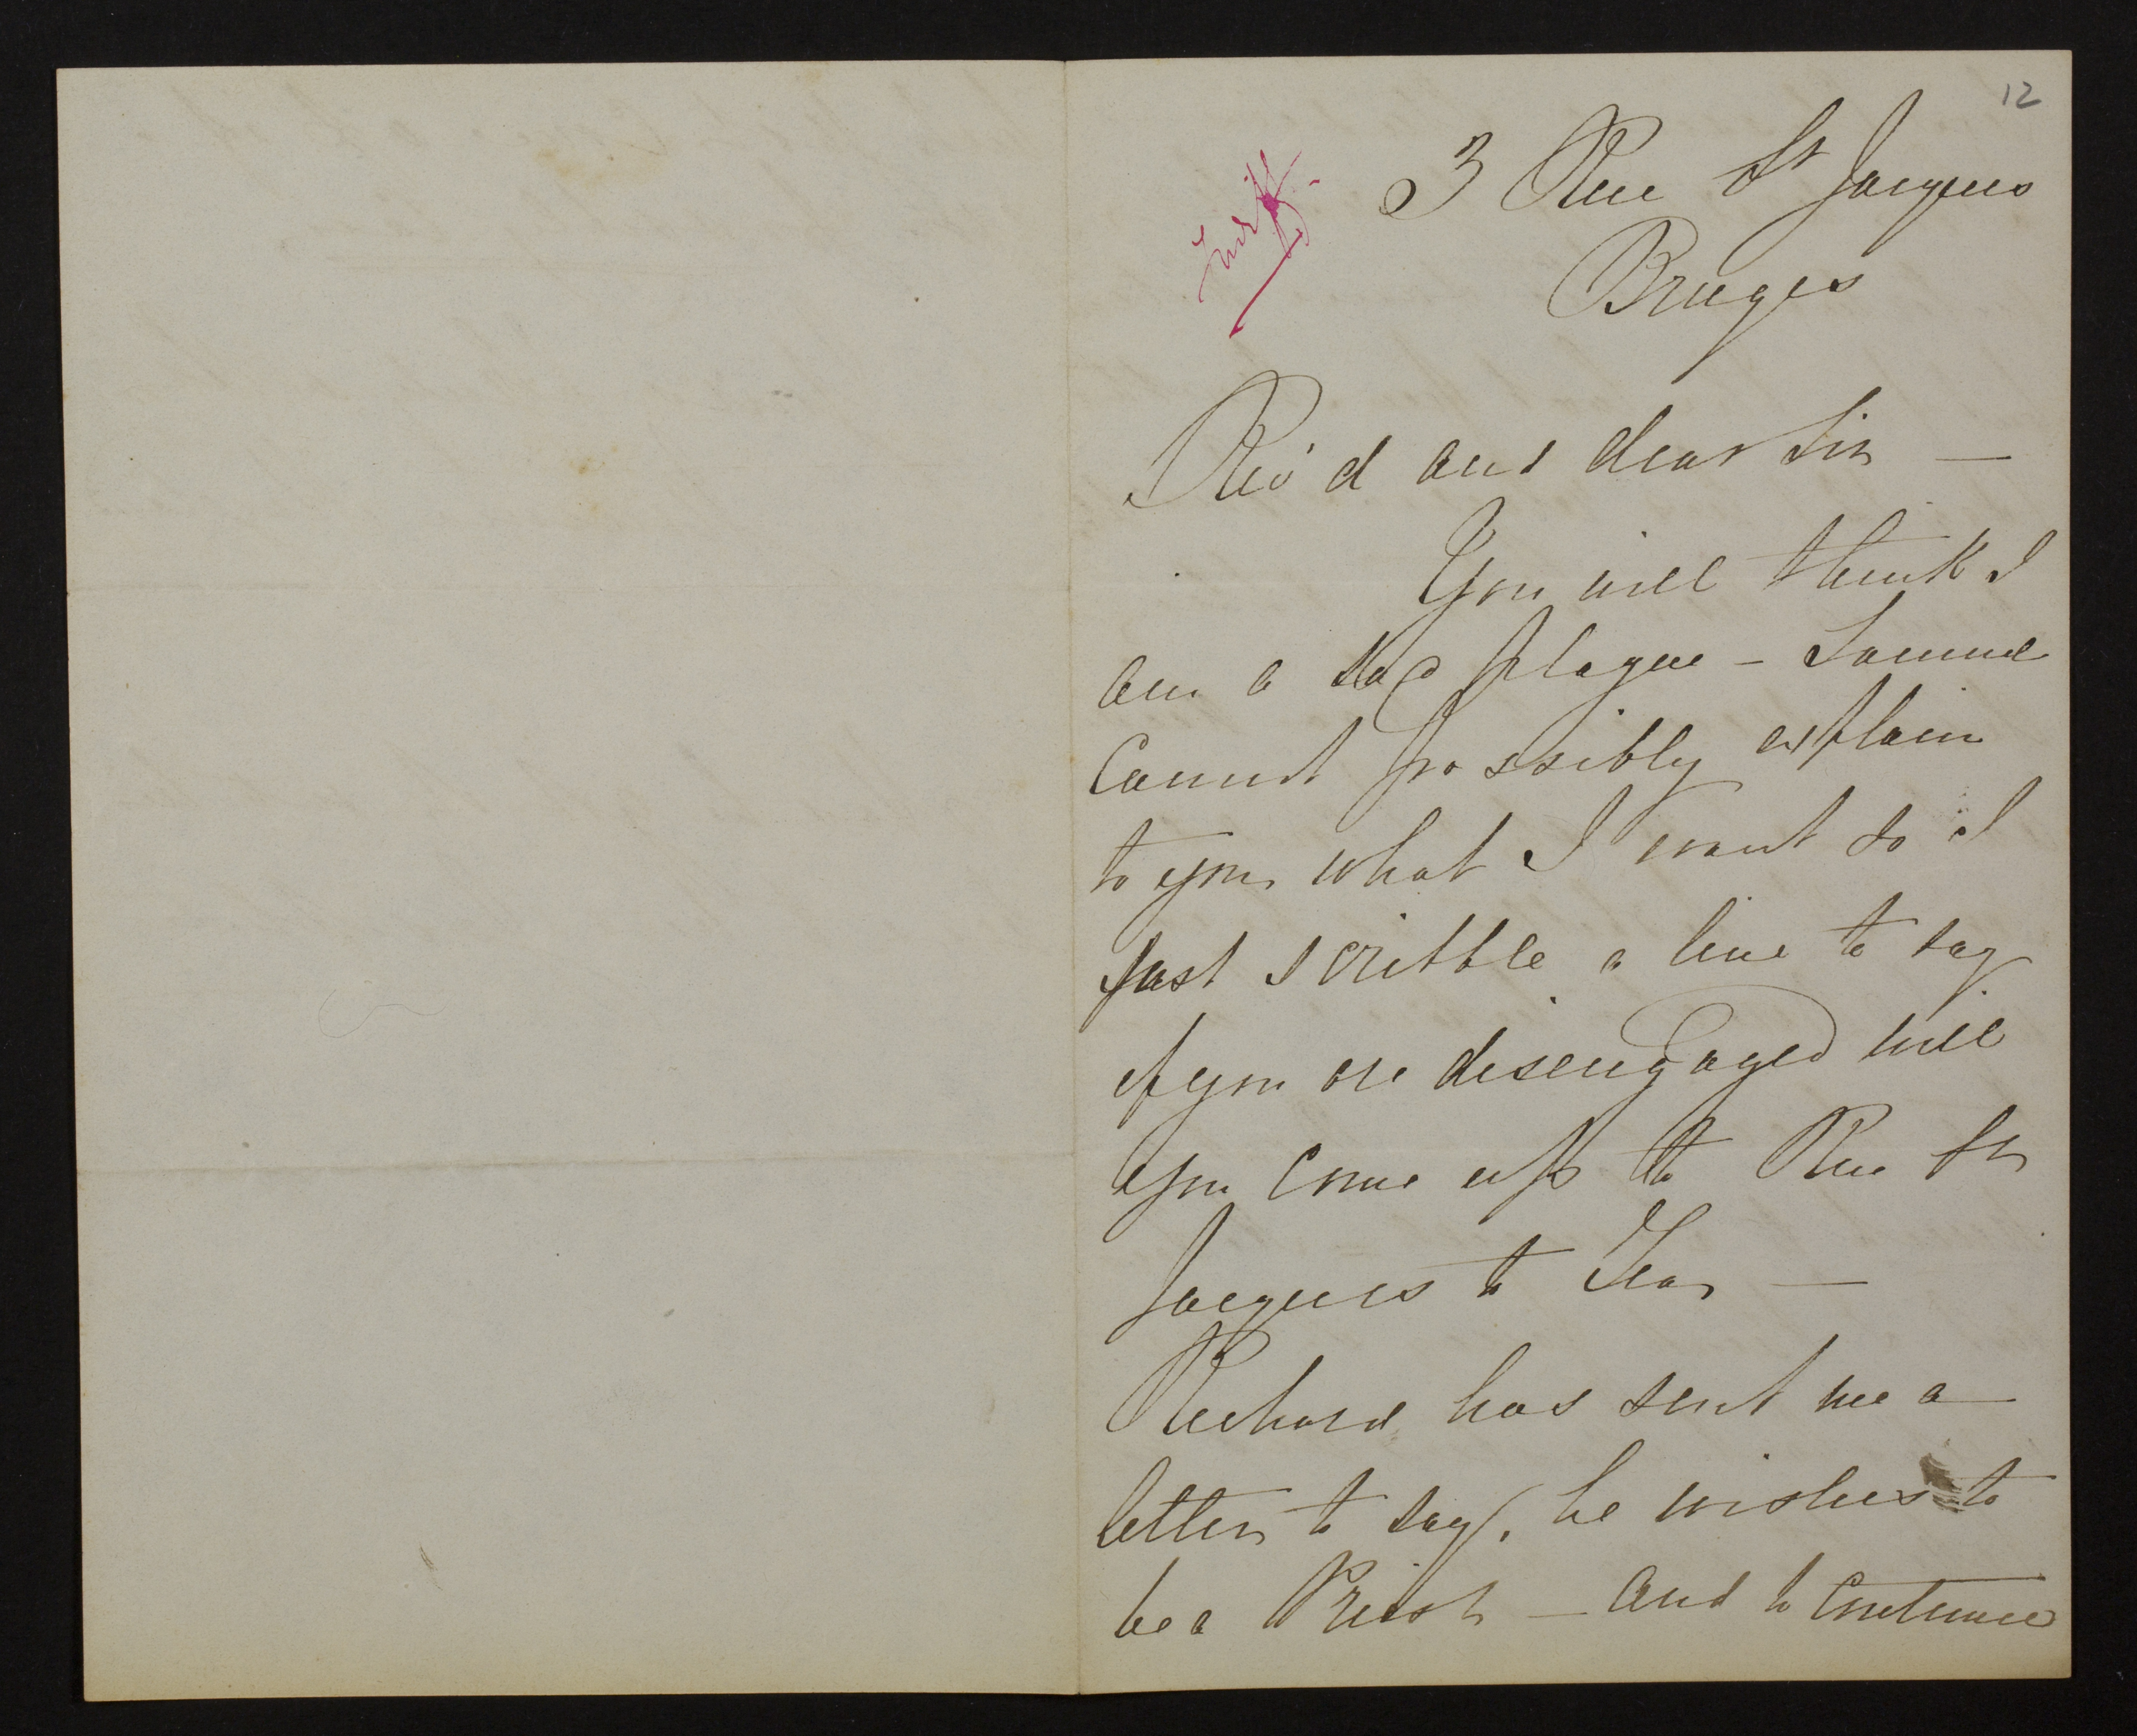 12
3 Rue St Jacques
Bruges
Rev'd and dear Sir —
You will think I
am a sad plague – Samuel
cannot possibly explain
to you what I want so I
just scribble a line to say
if you are disengaged will
you come up to Rue St
Jacques to Tea —
Richard has sent me a
letter to say, he wishes to
be a Priest — and to continue